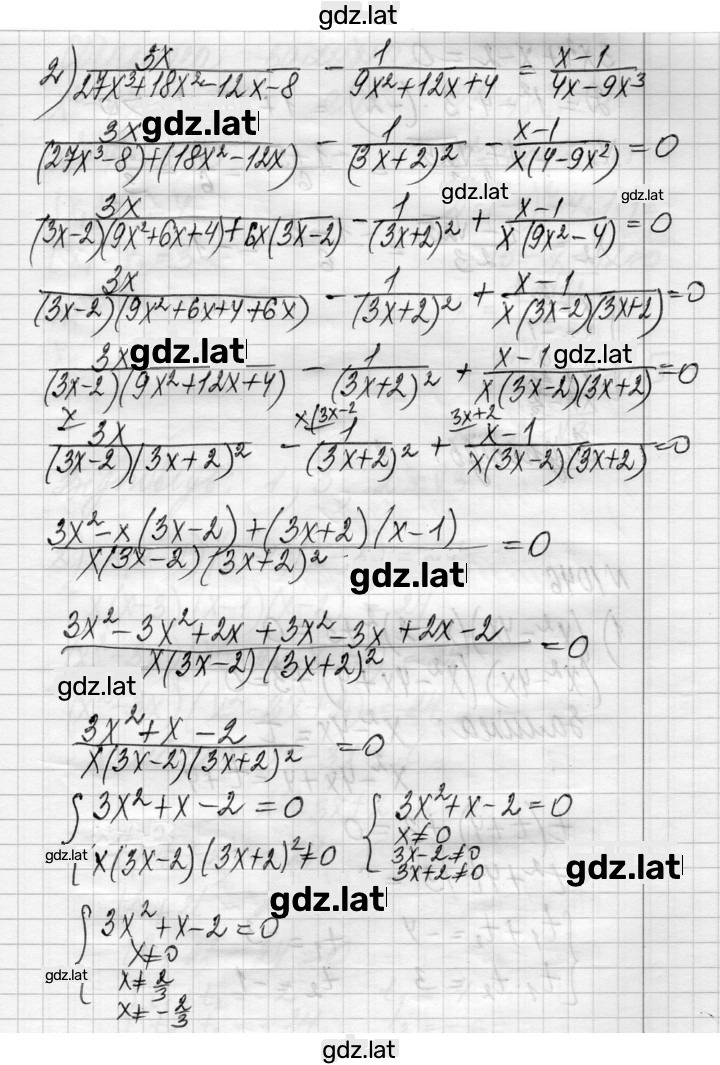 gdz.lat
2) 3x/(27x³+18x²-12x-8) - 1/(9x²+12x+4) = (x-1)/(4x-9x³)
gdz.lat
3x/((27x³-8)+(18x²-12x)) - 1/(3x+2)² - (x-1)/(x(4-9x²)) = 0
gdz.lat gdz.lat
3x/((3x-2)(9x²+6x+4)+6x(3x-2)) - 1/(3x+2)² + (x-1)/(x(9x²-4)) = 0
3x/((3x-2)(9x²+6x+4+6x)) - 1/(3x+2)² + (x-1)/(x(3x-2)(3x+2)) = 0
gdz.lat gdz.lat
3x/((3x-2)(9x²+12x+4)) - 1/(3x+2)² + (x-1)/(x(3x-2)(3x+2)) = 0
x x(3x-2 3x+2
3x/((3x-2)(3x+2)²) - 1/(3x+2)² + (x-1)/(x(3x-2)(3x+2)) = 0
(3x²-x(3x-2)+(3x+2)(x-1))/(x(3x-2)(3x+2)²) = 0
gdz.lat
(3x²-3x²+2x+3x²-3x+2x-2)/(x(3x-2)(3x+2)²) = 0
gdz.lat
(3x²+x-2)/(x(3x-2)(3x+2)²) = 0
{ 3x²+x-2=0 { 3x²+x-2=0
x(3x-2)(3x+2)²≠0 x≠0
3x-2≠0
3x+2≠0
gdz.lat gdz.lat
gdz.lat
{ 3x²+x-2=0
x≠0
x≠2/3
x≠-2/3
gdz.lat
gdz.lat